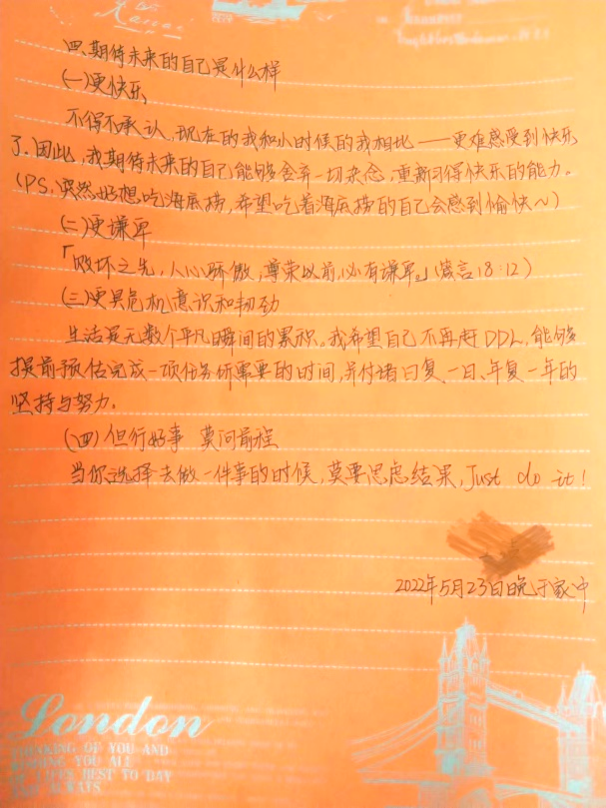 四、期待未来的自己是什么样
(一)更快乐
不得不承认,现在的我和小时候的我相比——更难感受到快乐
了。因此,我期待未来的自己能够舍弃一切杂念,重新习得快乐的能力。
(PS,突然好想吃海底捞,希望吃着海底捞的自己会感到愉快~)
(二)更谦卑
「败坏之先,人心骄傲,尊荣以前,必有谦卑。」(箴言18:12)
(三)更具危机意识和韧劲
生活是无数个平凡瞬间的累积。我希望自己不再赶DDL,能够
提前预估完成一项任务所需要的时间,并付诸日复一日、年复一年的
坚持与努力。
(四)但行好事 莫问前程
当你选择去做一件事的时候,莫要思虑结果,Just do it!
2022年5月23日晚于家中
London
THINKING OF YOU AND
WISHING YOU ALL
BEST TO DAY